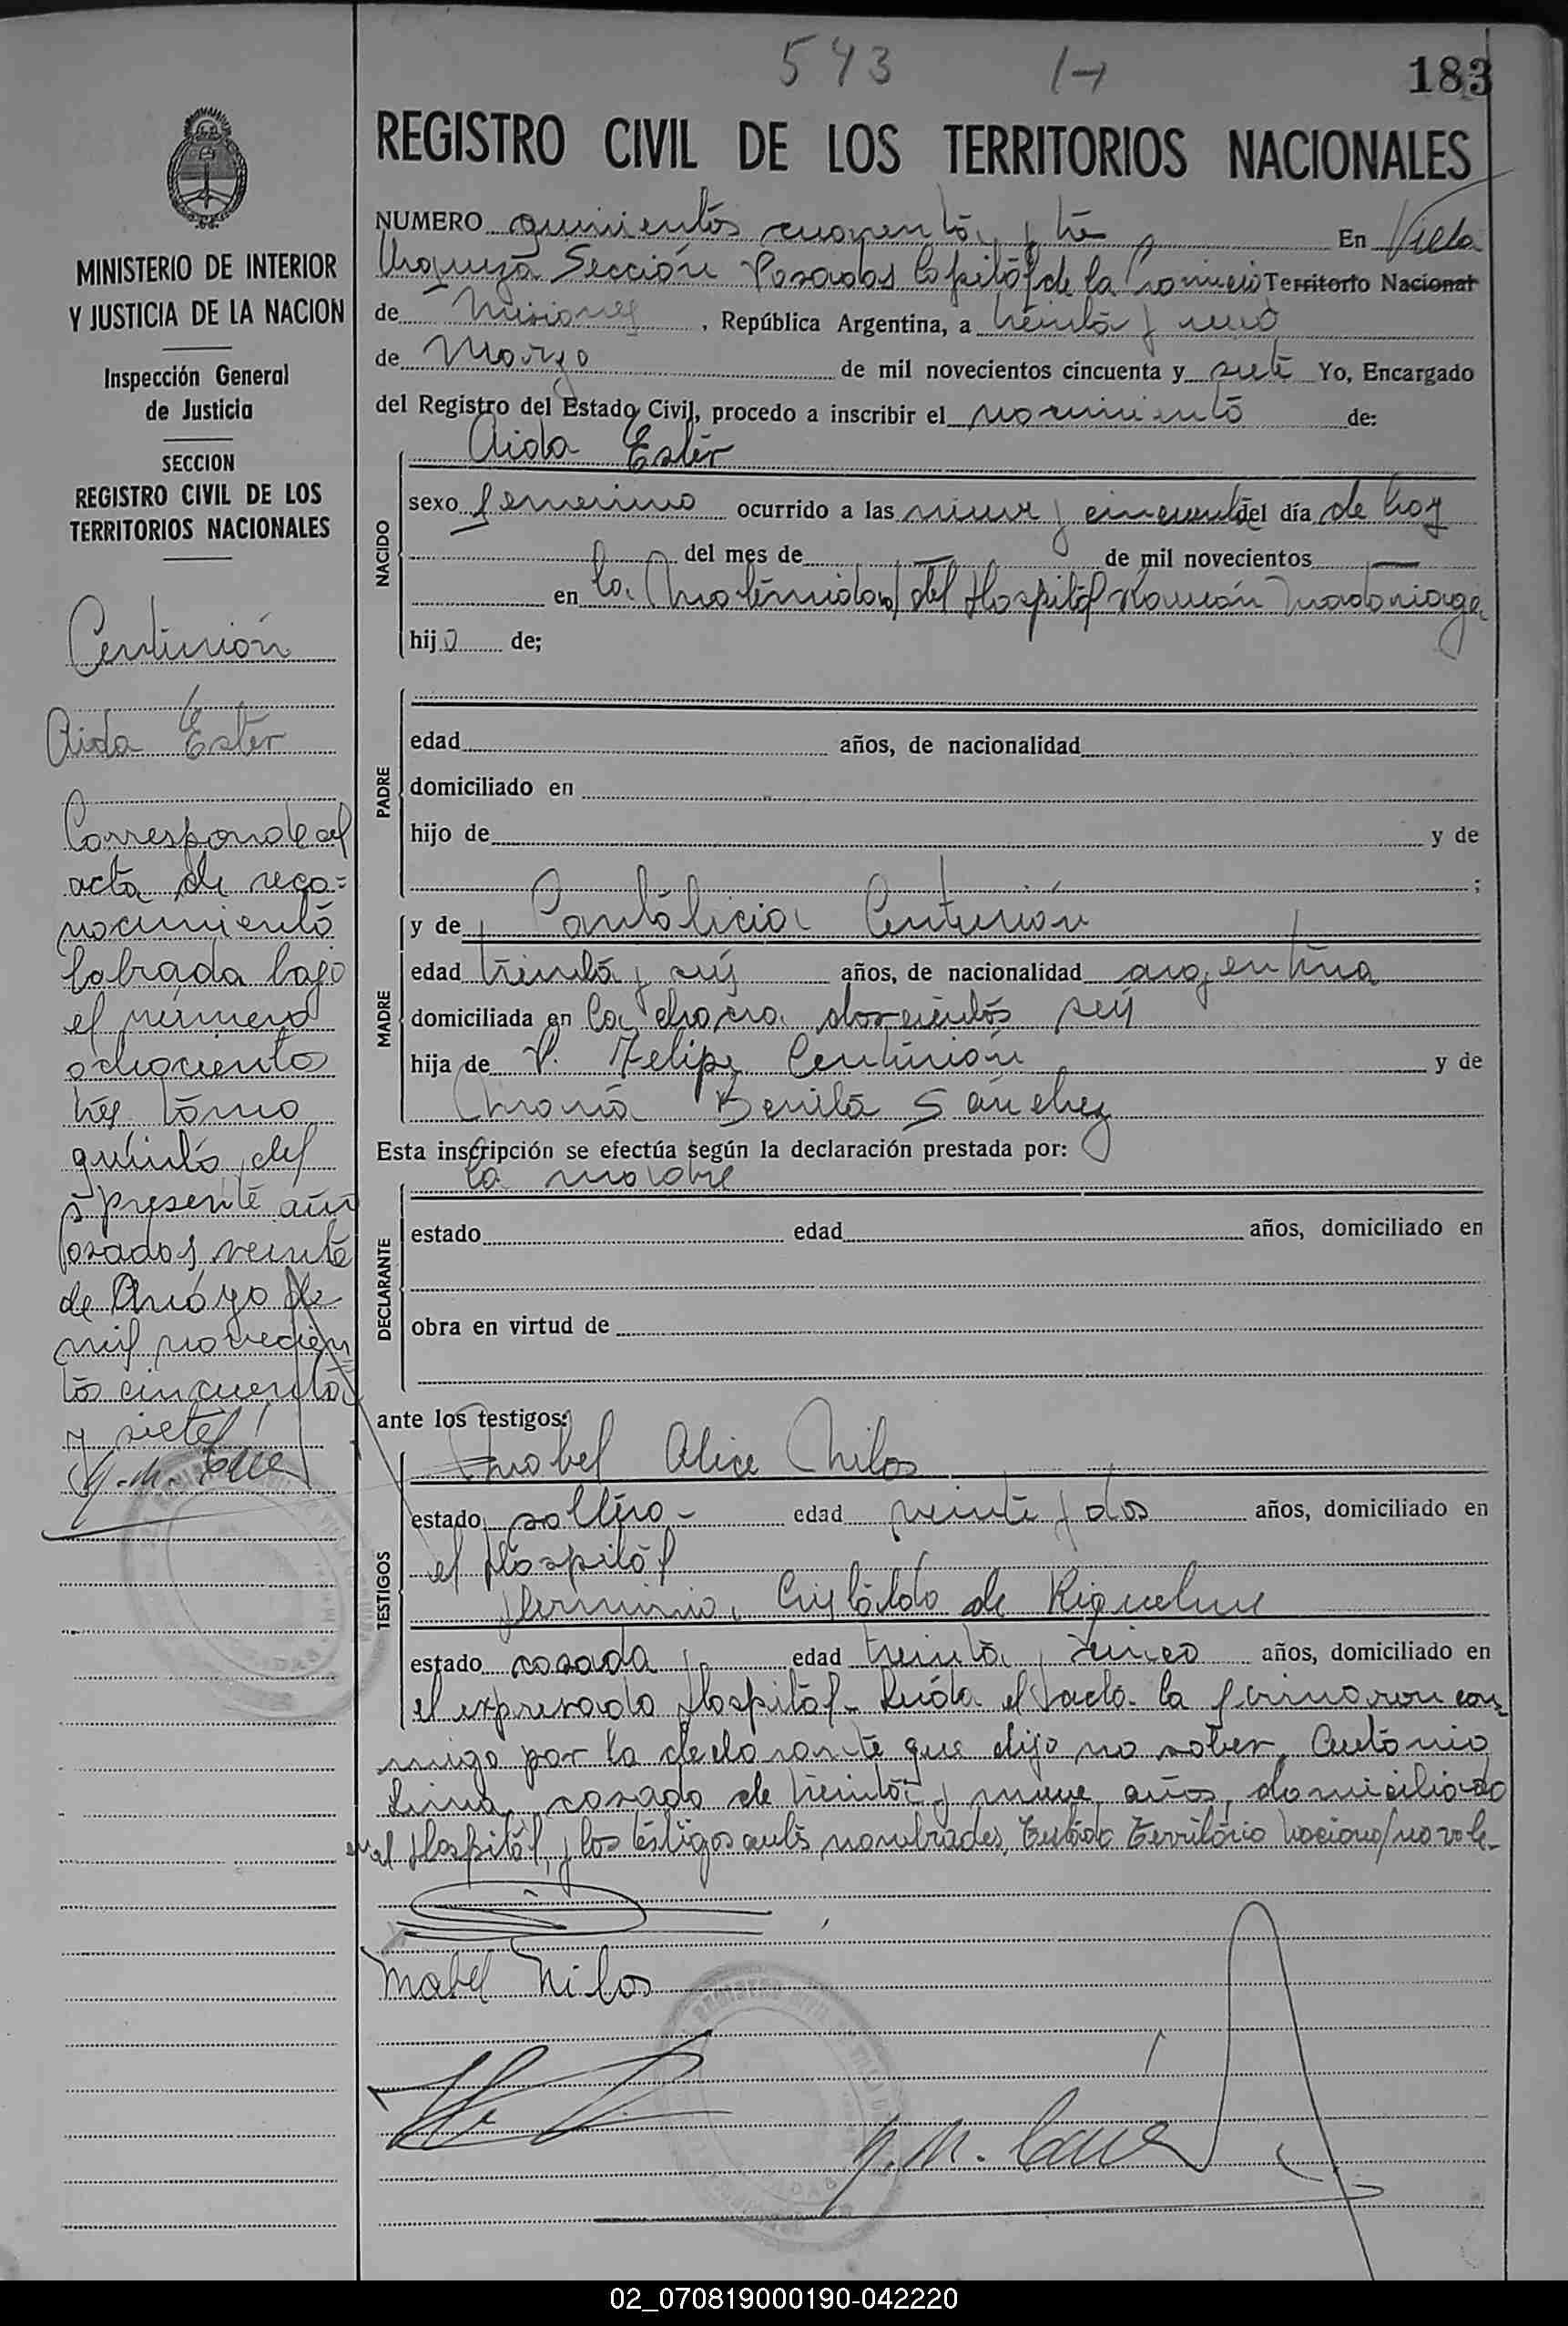 543
183
REGISTRO CIVIL DE LOS TERRITORIOS NACIONALES
MINISTERIO DE INTERIOR
Y JUSTICIA DE LA NACION
Inspección General
de Justicia
SECCION
REGISTRO CIVIL DE LOS
TERRITORIOS NACIONALES
Centurión
Aida Ester
Corresponde al
acta de reco=
nocimiento
labrada bajo
el número
ochociento
tres tomo
quinto del
presente año
Posadas veinte
de Mayo de
mil novecien
tos cincuenta
y siete
NUMERO quinientos cuarenta y tres En Villa
Urquiza Sección Posadas Capital de la Provincia Territorio Nacional
de Misiones, República Argentina, a treinta y uno
de Marzo de mil novecientos cincuenta y siete Yo, Encargado
del Registro del Estado Civil, procedo a inscribir el nacimiento de:
NACIDO
Aida Ester
sexo femenino ocurrido a las nueve y cincuenta del día de hoy
del mes de — de mil novecientos —
en la Maternidad del Hospital Ramón Madariaga
hija de;
PADRE
edad años, de nacionalidad
domiciliado en
hijo de y de
;
MADRE
y de Pantalicia Centurión
edad treinta y seis años, de nacionalidad argentina
domiciliada en la chacra doscientos seis
hija de P. Felipe Centurión y de
María Benita Sánchez
Esta inscripción se efectúa según la declaración prestada por:
DECLARANTE
la madre
estado edad años, domiciliado en
obra en virtud de
ante los testigos:
TESTIGOS
Mabel Alice Milos
estado soltera - edad veinte y dos años, domiciliado en
el Hospital
Herminia Cristaldo de Riquelme
estado casada edad treinta y cinco años, domiciliado en
el expresado Hospital - Leída el acta la firmaron con
migo por la declarante que dijo no saber, Antonio
Lima, casado de treinta y nueve años, domiciliado
en el Hospital, y los testigos antes nombrados, Territorio Nacional no vale-
Mabel Milos
02_070819000190-042220